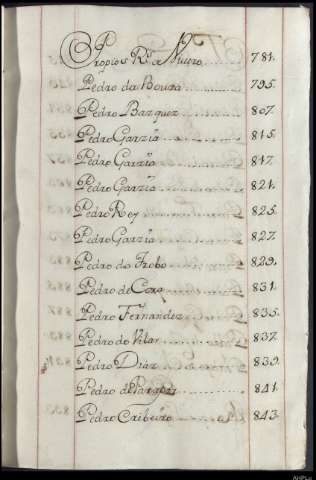 Propios Rs. de Nuevo 781.
Pedro da Bouza 795.
Pedro Bazquez 807.
Pedro Garzia 815.
Pedro Garzia 817.
Pedro Garzia 821.
Pedro Rey 825.
Pedro Garzia 827.
Pedro do Frobo 829.
Pedro de Coxo 831.
Pedro Fernandez 835.
Pedro do Vilar 837.
Pedro Diaz 839.
Pedro 841.
Pedro Cribeiro 843.
AHPLu